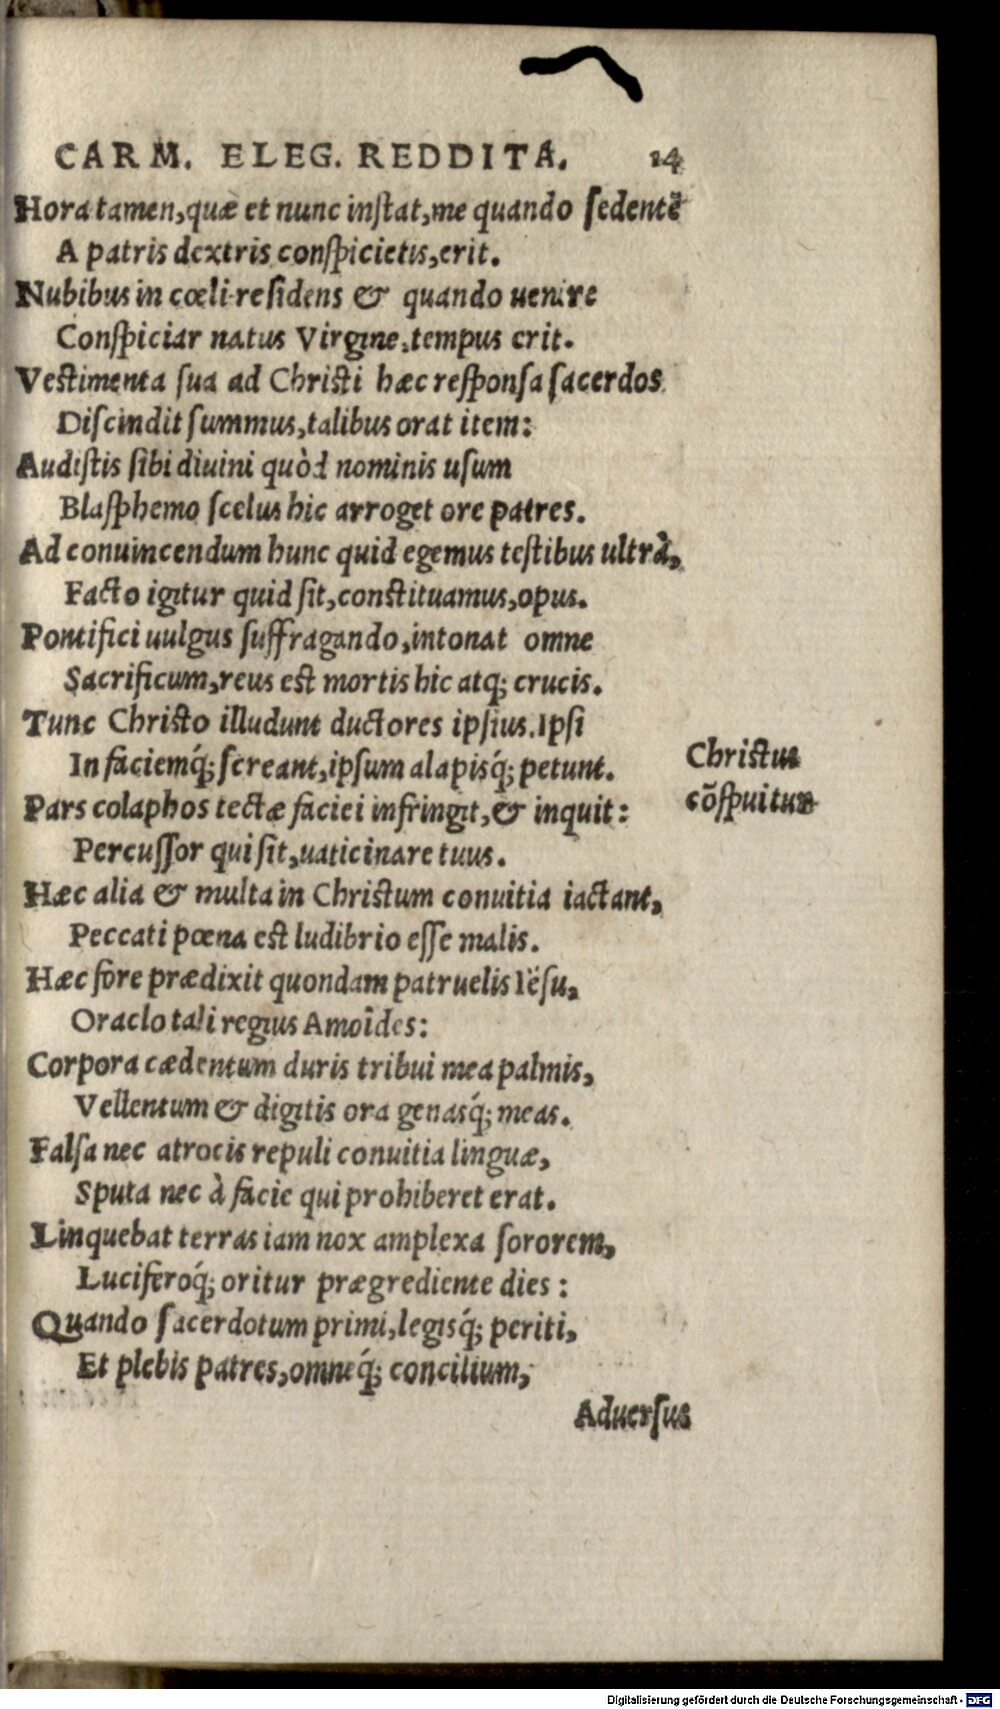 CARM. ELEG. REDDITA. 14
Hora tamen, quæ et nunc instat, me quando sedentẽ
A patris dextris conspicietis, erit.
Nubibus in cœli residens & quando uenire
Conspiciar natus Virgine, tempus erit.
Vestimenta sua ad Christi hæc responsa sacerdos
Discindit summus, talibus orat item:
Audistis sibi diuini quòd nominis usum
Blasphemo scelus hic arroget ore patres.
Ad conuincendum hunc quid egemus testibus ultrà,
Facto igitur quid sit, constituamus, opus.
Pontifici uulgus suffragando, intonat omne
Sacrificum, reus est mortis hic atq; crucis.
Tunc Christo illudunt ductores ipsius. Ipsi
In faciemq́; screant, ipsum alapisq́; petunt.
Christus
cõspuitur
Pars colaphos tectæ faciei infringit, & inquit:
Percussor qui sit, uaticinare tuus.
Hæc alia & multa in Christum conuitia iactant,
Peccati pœna est ludibrio esse malis.
Hæc fore prædixit quondam patruelis Iësu,
Oraclo tali regius Amoîdes:
Corpora cædentum duris tribui mea palmis,
Vellentum & digitis ora genasq́; meas.
Falsa nec atrocis repuli conuitia linguæ,
Sputa nec à facie qui prohiberet erat.
Linquebat terras iam nox amplexa sororem,
Luciferoq́; oritur prægrediente dies:
Quando sacerdotum primi, legisq́; periti,
Et plebis patres, omneq́; concilium,
Aduersus
Digitalisierung gefördert durch die Deutsche Forschungsgemeinschaft - DFG